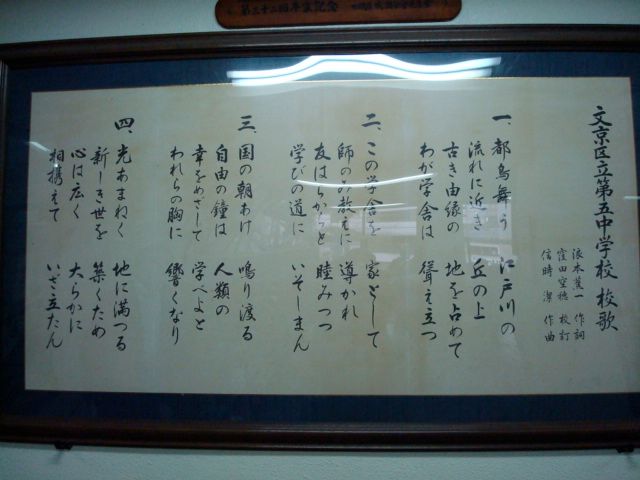 第三十二回卒業記念
文京区立第五中学校 校歌
浪本葉一 作詞
窪田空穂 校訂
信時 潔 作曲
一、都鳥舞う 江戸川の
流れに近き 丘の上
古き由縁の 地を占めて
わが学舎は 聳え立つ
二、この学舎を 家として
師のみ教えに 導かれ
友はらからと 睦みつつ
学びの道に いそしまん
三、国の朝あけ 鳴り渡る
自由の鐘は 人類の
幸をめざして 学べよと
われらの胸に 響くなり
四、光あまねく 地に満つる
新しき世を 築くため
心は広く 大らかに
相携えて いざ立たん